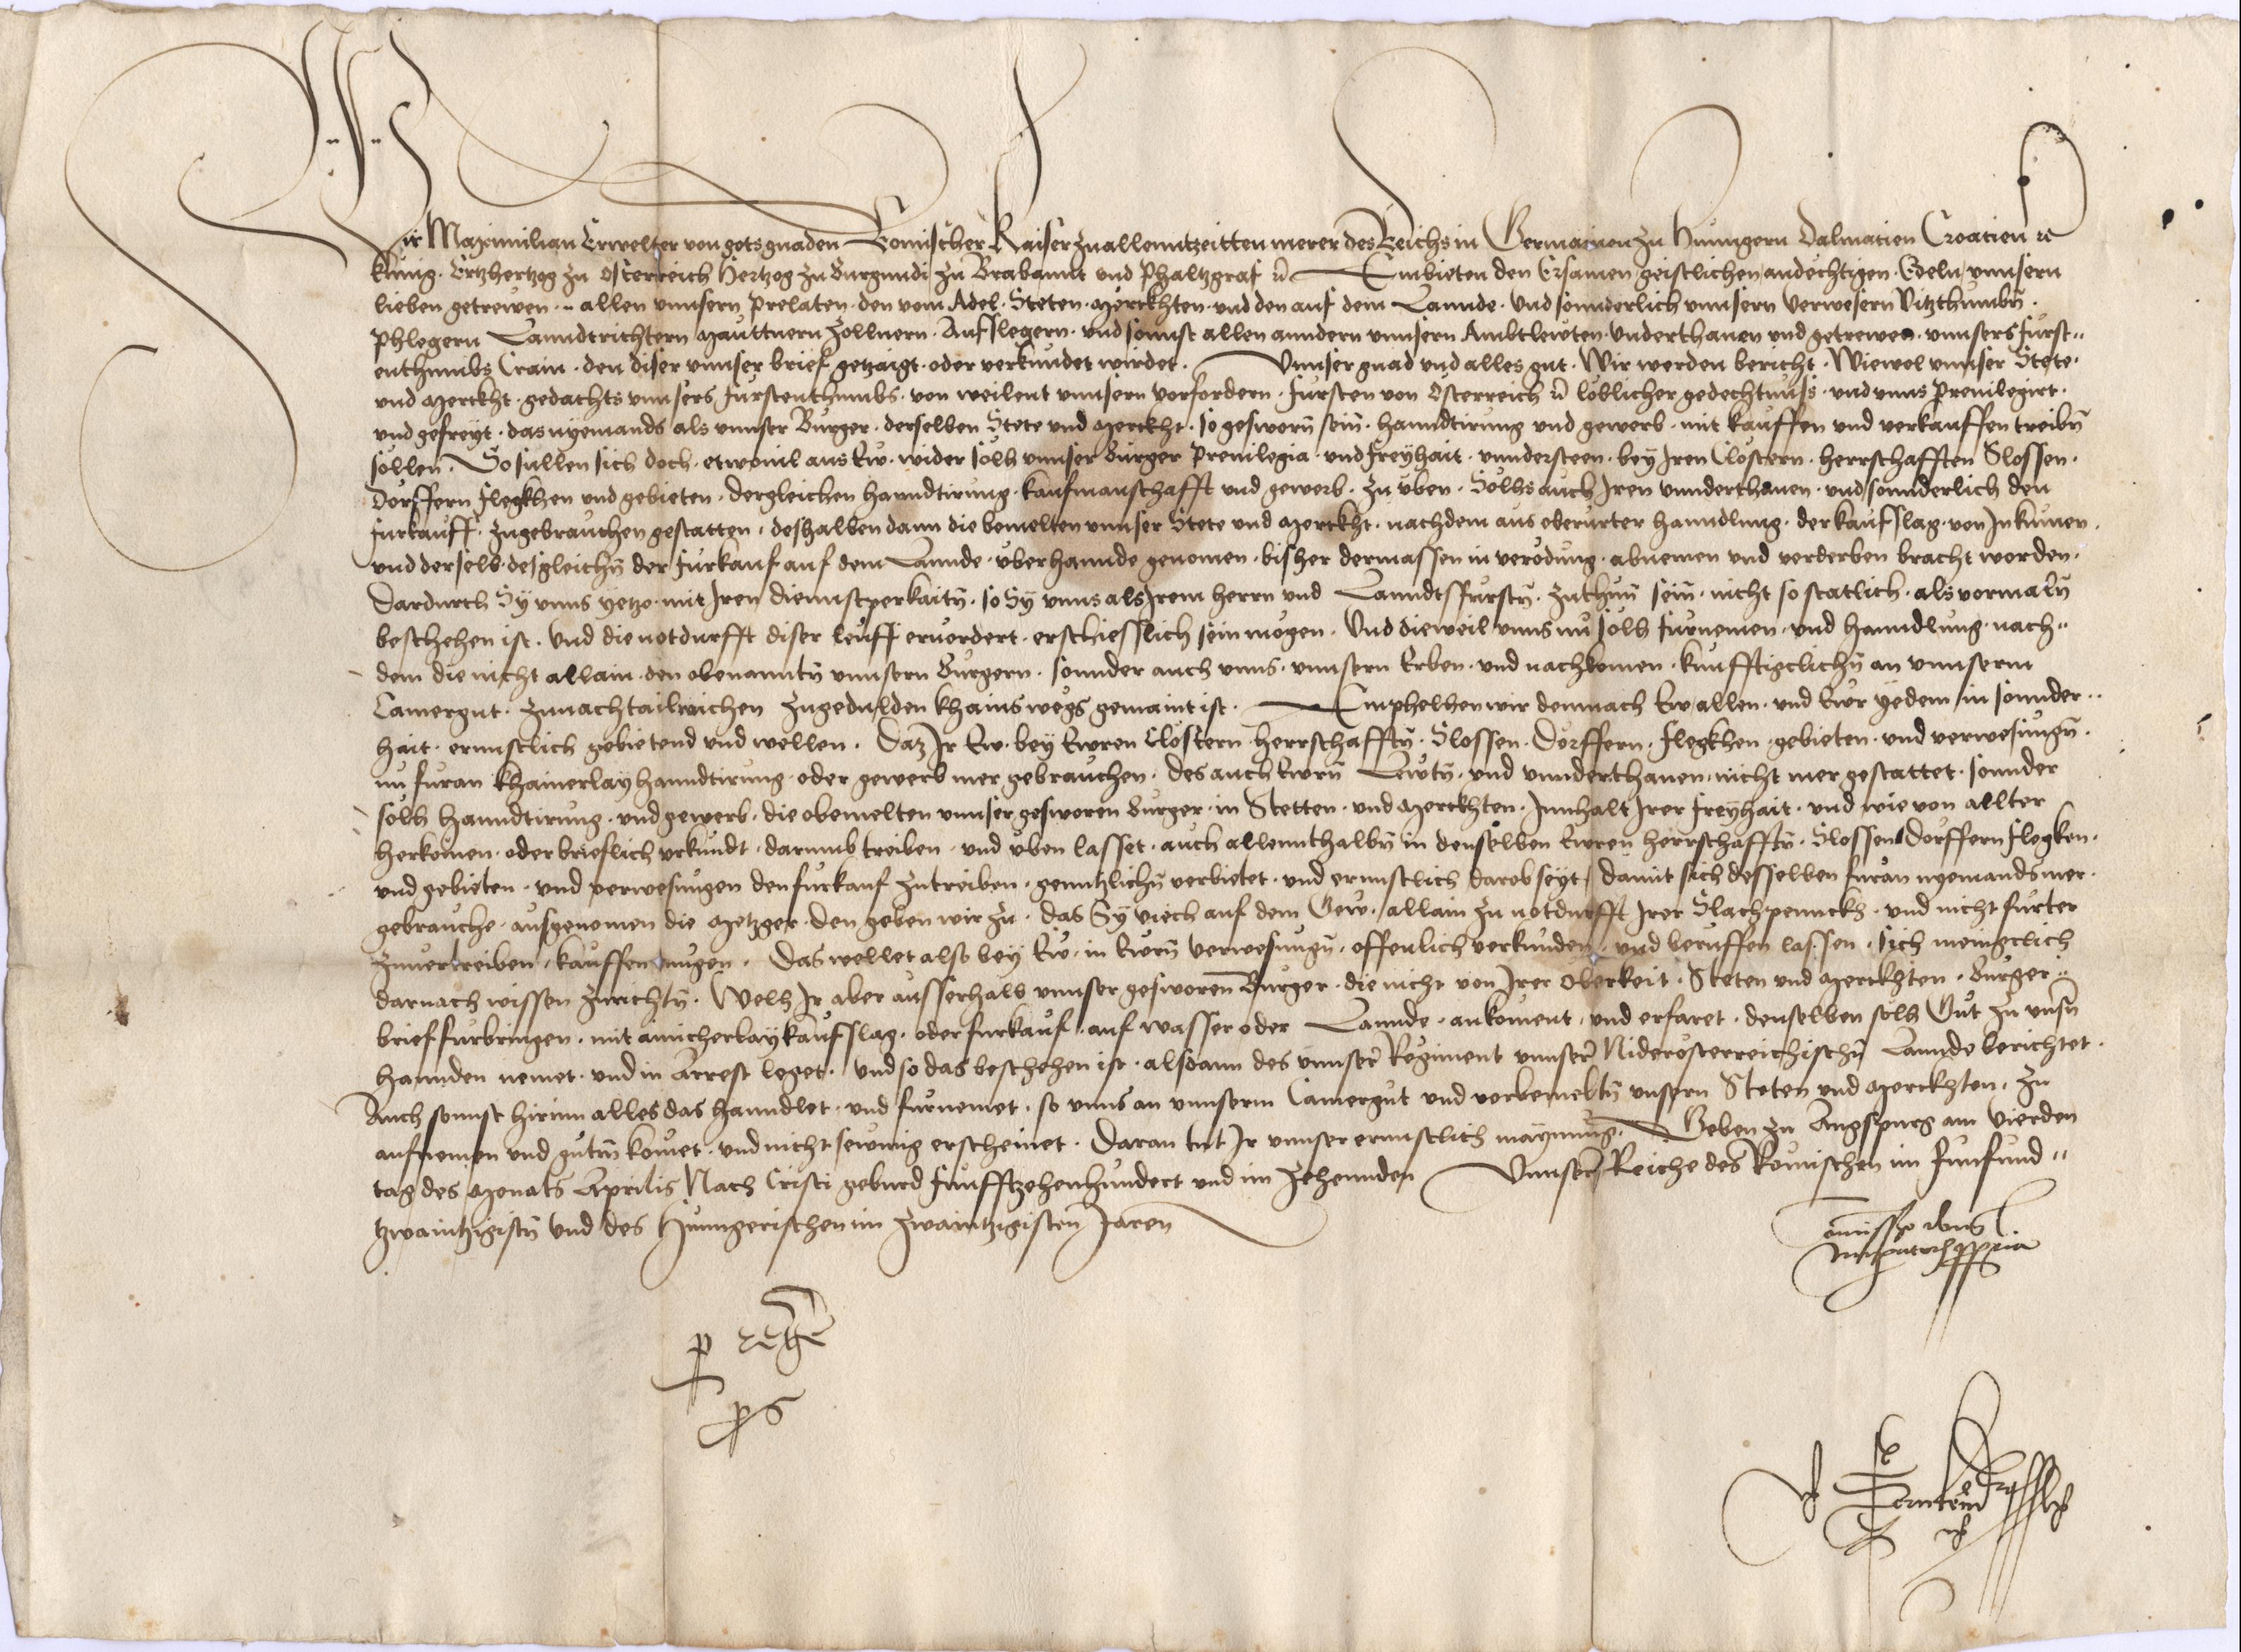 Wir Maximilian Erwelter von gots gnaden Romischer Kaiser zu allenntzeitten merer des Reichs in Germanien zu Hunngern Dalmatien Croatien ꝛc
kunig · Ertzhertzog zu Osterreich Hertzog zu Burgundi zu Brabannt und Phaltzgraf ꝛc Embieten den Ersamen geistlichen andechtigen · Edeln vnnsern
lieben getrewen · n allen vnnsern Prelaten · den vom Adel · Steten · Merckhten · vnd den auf dem Lannde · Vnd sonnderlich vnnsern Verwesern Vitzthumbn̄ ·
Phlegern Lanndtrichtern Mauttnern Zollnern · Aufslegern · vnd sonnst allen anndern vnnsern Ambtlewten · Vnderthanen vnd getrewen · vnnsers furst〃
enthumbs Crain · den diser vnnser brief getzaigt · oder verkundet wirdet · Vnnser gnad vnd alles gut · Wir werden bericht · Wiewol vnnser Stete ·
vnd Merckht · gedachts vnnsers furstenthumbs · von weilent vnnsern vorfordern · fursten von Österreich ꝛc loblicher gedechtnuss · vnd vnns Preuilegirt ·
vnd gefreyt · das nyemands als vnnser Burger · derselben Stete vnd Merckht · so gesworn̄ sein̄ · hanndtirung vnd gewerb · mit kauffen vnd verkauffen treibn̄
sollen · So sullen sich doch · etweuil aus Ew · wider solh vnnser Burger Preuilegia · vnd freyhait · vndersteen · bey Iren Clostern · herrschafften Slossen ·
Dorffern Flegkhen vnd gebieten · dergleichen hanndtirung · kaufmanschafft vnd gewerb · zu vben · Solhs auch Iren vnnderthanen · vnd sonnderlich den
furkauff · zugebrauchen gestatten · deshalben dann die bemelten vnnser Stete vnd Merckht · nachdem aus oberurter hanndlung · der kaufslag · von In kumen ·
vnd derselb · desgleichn̄ der furkauf auf dem Lannde · vberhannde genomen · bisher dermassen in verodung · abnemen vnd verderben bracht worden ·
Dardurch Sÿ vnns yetzo · mit Iren diennstperkaitn̄ · so Sÿ vnns als Irem herrn vnd Lanndtsfurstn̄ · zuthun̄ sein̄ · nicht so statlich · als vormaln̄
beschehen ist · Vnd die notdurfft diser leuff eruordert · erschieslich sein mogen · Vnd dieweil vnns nu solh furnemen · vnd hanndlung · nach〃
dem die nicht allain · den obenanntn̄ vnnsern Burgern · sonnder auch vnns · vnnsern Erben · vnd nachkomen · kunfftigclichn̄ an vnnserm
Camergut · zu nachtail raichen zugedulden khains wegs gemaint ist · Emphelhen wir demnach Ew allen · vnd Ewr yedem in sonnder〃
hait · ernnstlich gebietend vnd wellen · Daz Ir Ew · bey Ewren Clostern · herrschafftn̄ · Slossen · Dorffern · Flegkhen · gebieten · vnd verwesungn̄ ·
nu furan khainerlay hanndtirung · oder gewerb mer gebrauchen · des auch Ewrn̄ Lewtn̄ · vnd vnnderthanen · nicht mer gestattet · sonnder
solh hanndtirung · vnd gewerb · die obemelten vnnser gesworen Burger · in Stetten · vnd Merckhten · Innhalt Irer freyhait · vnd wie von allter
herkomen · oder brieflich vrkundt · darumb treiben · vnd vben lasset · auch allennthalbn̄ in denselben Ewren herrschafftn̄ · Slossen Dorffern Flegken ·
vnd gebieten · vnd verwesungen den furkauf zutreiben · genntzlichn̄ verbietet · vnd ernnstlich darob seyt · damit sich desselben furan nyemands mer ·
gebrauche · ausgenomen die Metzger · den geben wir zu · das Sÿ viech auf dem Gew · allain zu notdurfft Irer Slachpennckh · vnd nicht furter
zuuertreiben · kauffen mugen · Das wellet also bey Ew · in Ewrn̄ verwesungn̄ · offenlich verkunden · vnd beruffen lassen · sich menigclich
darnach wissen zurichtn̄ · Welh Ir aber ausserhalb vnnser gesworen̄ Burger · die nicht von Irer Oberkeit · Steten vnd Merckhten · Burger〃
brief furbringen · mit ainicherlay kaufslag · oder furkauf · auf wasser oder Lannde · ankoment · vnd erfaret · denselben solh Gut zu vnsn̄
hannden nemet · vnd in Arrest leget · vnd so das beschehen ist · alsdann des vnnser̄ Regiment vnnser̄ Niderosterreichischn̄ Lannde berichtet ·
Auch sonnst hirinn alles das hanndlet · vnd furnemet · so vnns an vnnserm Camergut vnd vorbemeltn̄ vnsern Steten vnd Merckhten · zu
aufnemen vnd gutn̄ komet · vnd nicht sewmig erscheinet · Daran tut Ir vnnser ernnstlich maynung · Geben zu Augspurg am Vierden
tag des Monats Aprilis Nach Cristi geburd funfftzehenhundert vnd im Zehennden Vnnserr Reiche des Romischen im funfund〃
tzwaintzigistn̄ vnd des Hunngerischen im Zwaintzigisten Jaren
Comissio dn̄i
Imperatoris ppria
p Rege
p s